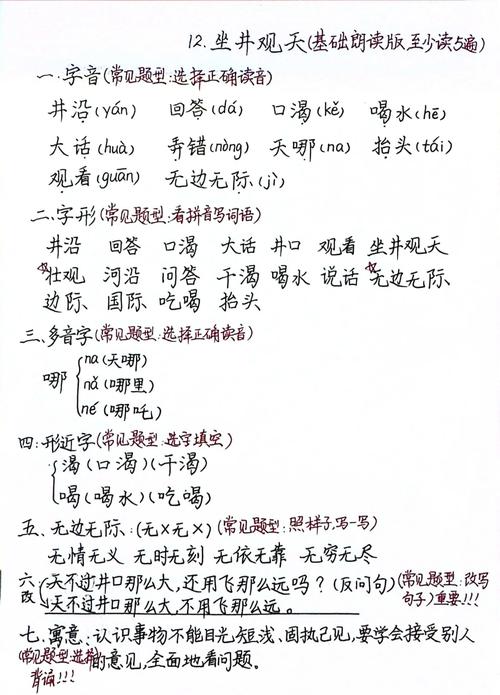 12. 坐井观天(基础朗读版 至少读5遍)
一.字音(常见题型:选择正确读音)
井沿(yán) 回答(dá) 口渴(kě) 喝水(hē)
大话(huà) 弄错(nòng) 天哪(na) 抬头(tái)
观看(guān) 无边无际(jì)
二.字形(常见题型:看拼音写词语)
井沿 回答 口渴 大话 井口 观看 坐井观天
☆壮观 河沿 问答 干渴 喝水 说话 ☆无边无际
边际 国际 吃喝 抬头
三.多音字(常见题型:选择正确读音)
哪 na(天哪)
nǎ(哪里)
né(哪吒)
四.形近字(常见题型:选字填空)
渴(口渴)(干渴)
喝(喝水)(吃喝)
五.无边无际:(无×无×)(常见题型:照样子,写一写)
无情无义 无时无刻 无依无靠 无穷无尽
六改 天不过井口那么大,还用飞那么远吗?(反问句)(常见题型:改写
天不过井口那么大,不用飞那么远。 句子)重要!!!
七.寓意:认识事物不能目光短浅、固执己见,要学会接受别人
(常见题型:选择)的意见,全面地看问题。
背诵!!!